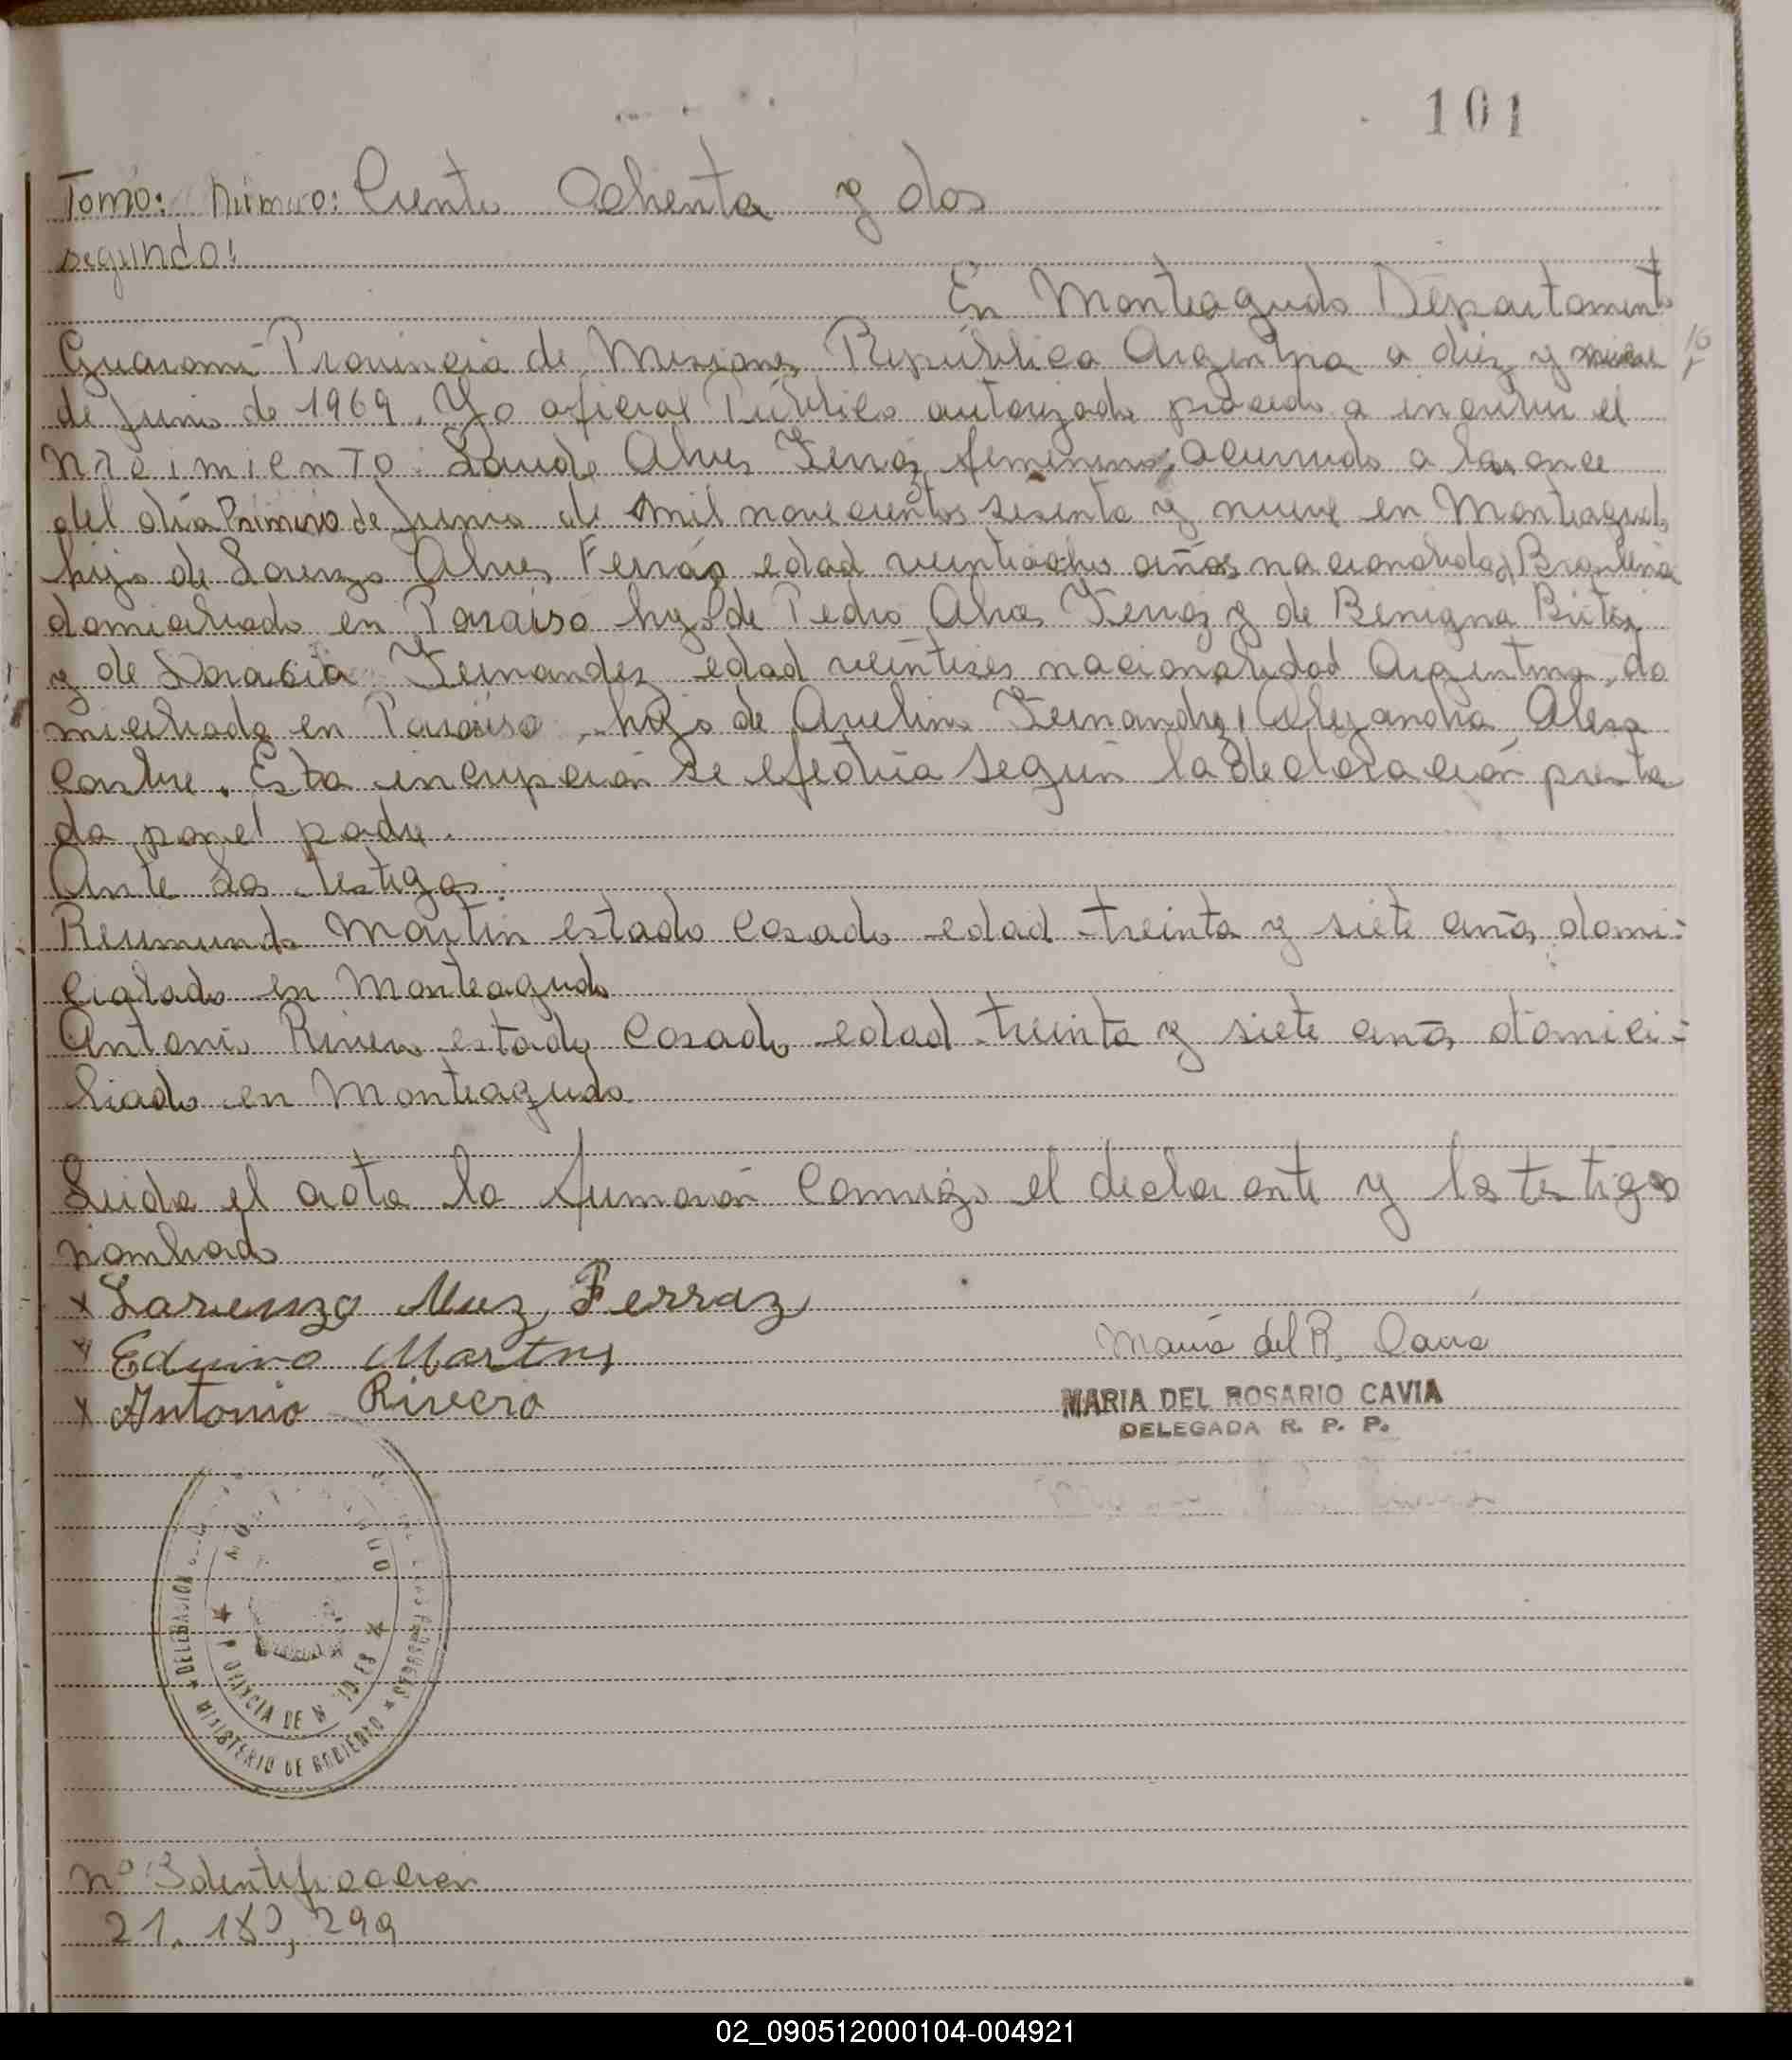 101
Tomo: Número: Ciento Ochenta y dos
segundo:
En Monteagudo Departamento
Guaraní Provincia de Misiones República Argentina a diez y nueve
de Junio de 1969, Yo oficial Público autorizado procedo a inscribir el
nacimiento: Alves Ferraz femenino, ocurrido a las once
del día Primero de Junio de mil novecientos sesenta y nueve en Monteagudo
hijo de Lorenzo Alves Ferráz edad veintiocho años nacionalidad Brasilera
domiciliado en Paraíso hijo de Pedro Alves Ferraz y de Benigna
y de Fernandez edad veintiseis nacionalidad Argentina, do
miciliada en Paraíso, hijo de Avelino Fernandez, Alejandra
. Esta incripción se efectúa según la declaración presta
da por el padre.
Ante los testigos:
Reimundo Martin estado Casado edad treinta y siete años domi=
cialado en Monteagudo
Antonio Rivero estado Casado edad treinta y siete años domici=
liado en Monteagudo
Leida el acta la firmarón Conmigo el declarante y los testigos
nombrado
x Larenzo Ferraz
x
x Antonio Rivero
María del R. Cavia
MARIA DEL ROSARIO CAVIA
DELEGADA R. P. P.
DELEGACION
MINISTERIO DE GOBIERNO
nº Identificacion
21.180,299
02_090512000104-004921